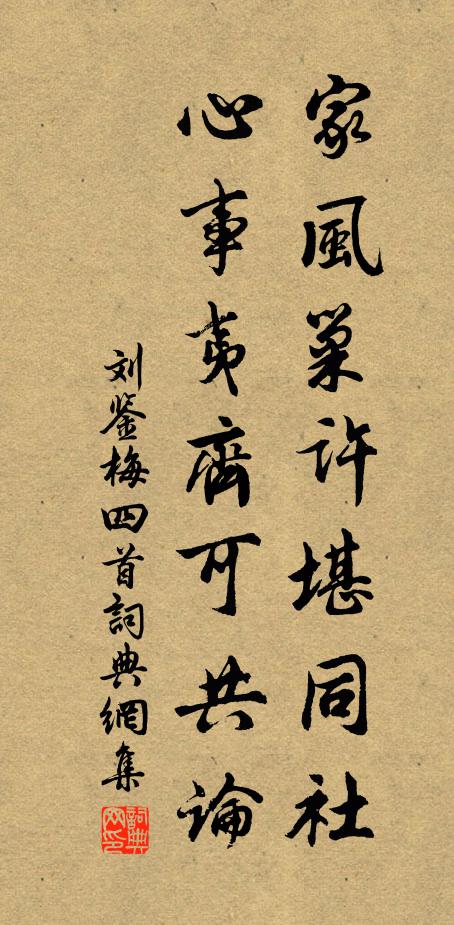 家風巢許堪同社
心事夷齊可共論
刘鉴梅四首詞典網集
詞典网印